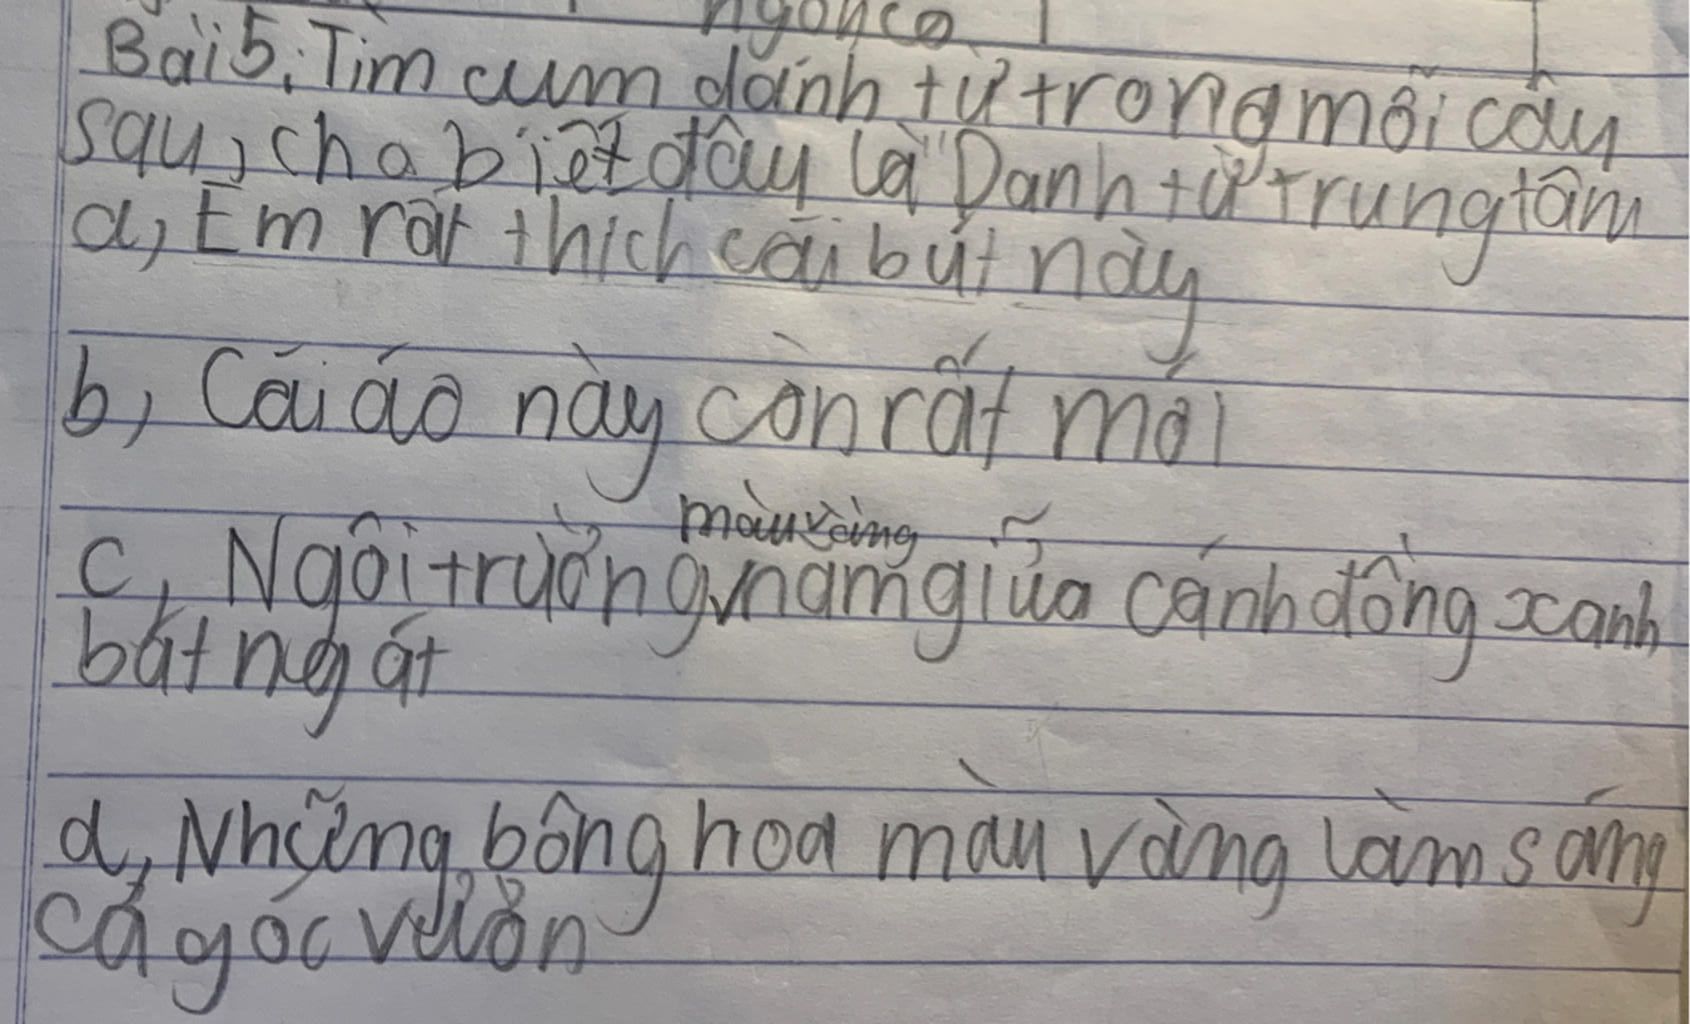 ngôn cỏ
Bài 5: Tìm cụm danh từ trong mỗi câu
sau, cho biết đâu là "Danh từ trung tâm
a, Em rất thích cái bút này
b, Cái áo này còn rất mới
màu vàng
c, Ngôi trường v nằm giữa cánh đồng xanh
bát ngát
d, Những bông hoa màu vàng làm sáng
cả góc vườn